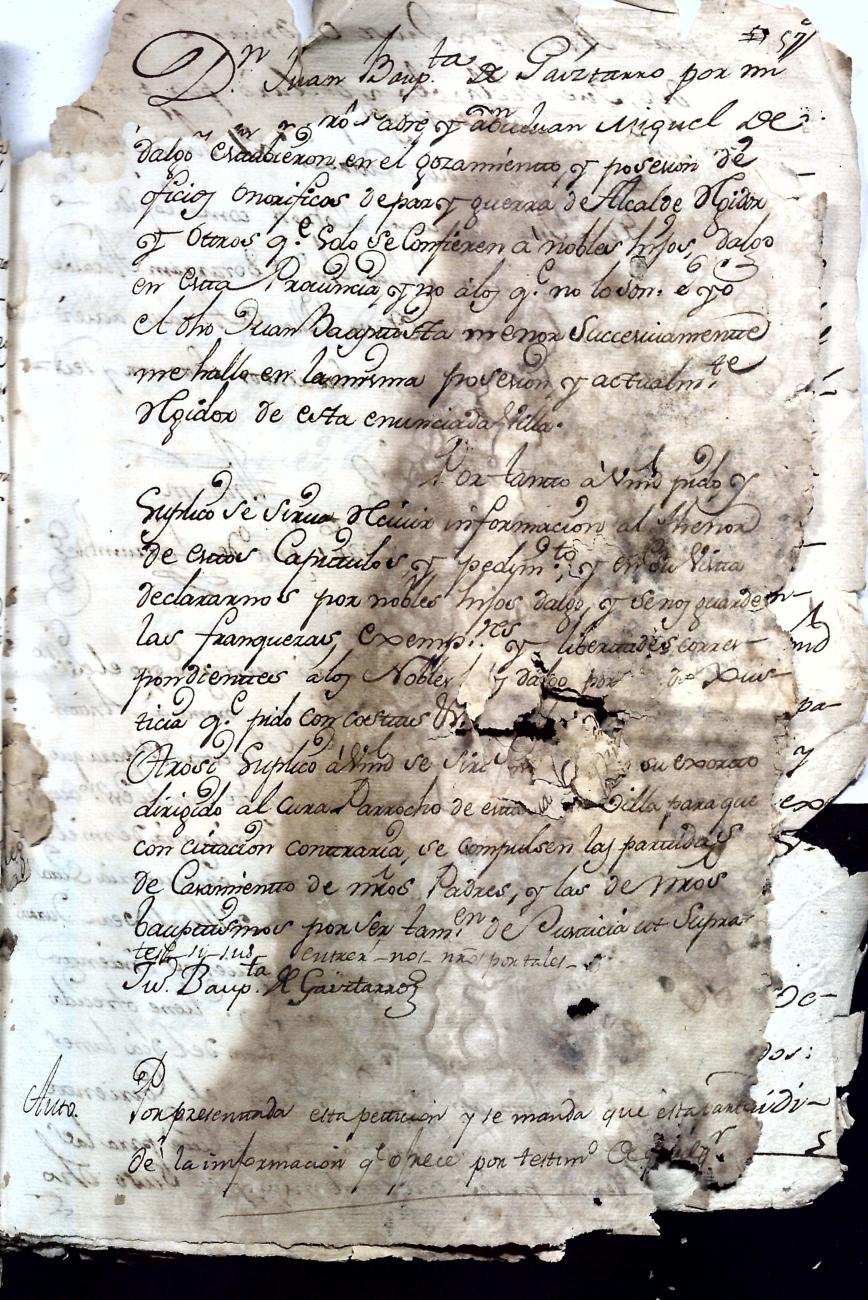 57
D.n Juan Baup.ta de Gaiztarro por mi
rôs abre y Juan Miguel De
dalgo estubieron en el gozamiento, y posesion de
oficios onorificos de paz y guerra de Alcalde Rẽgidor
y Ottros q.e solo se Confieren a nobles hijos, dalgo
en esta Prouincia, y no alos q.e no lo son. e yo
el dho Juan Bauptista menor Successiuamente
me hallo en la misma posesion y actualm.te
Regidor de esta enunciada Villa.
Por tantto à Vmd pido y
Suplico se sirua Reciuir informacion al thenor
de estos Capitulos y pedim.to y en su Vista
declararnos por nobles hijos dalgo, y se nos guarden
las franquezas, exemp.nes y libertades corres-
pondientes alos Nobles y dalgo por Jus-
ticia q.e pido con costas &.
Otrosi Suplico à Vmd se su exorto
dirigido al Cura Parrocho de esta Villa para que
con cittacion conttraria, se compulsen las partidas
de Casamiento de nrôs Padres, y las de nrôs
bauptismos por ser tam.en de Justicia ut Supra
test-si-sus entrer-nos-nrôs por tales-
Ju. Baup.ta de Gaiztarro
Auto.
Por presentada esta peticion y se manda que esta
dê la informacion q.e ofrece por testim.o